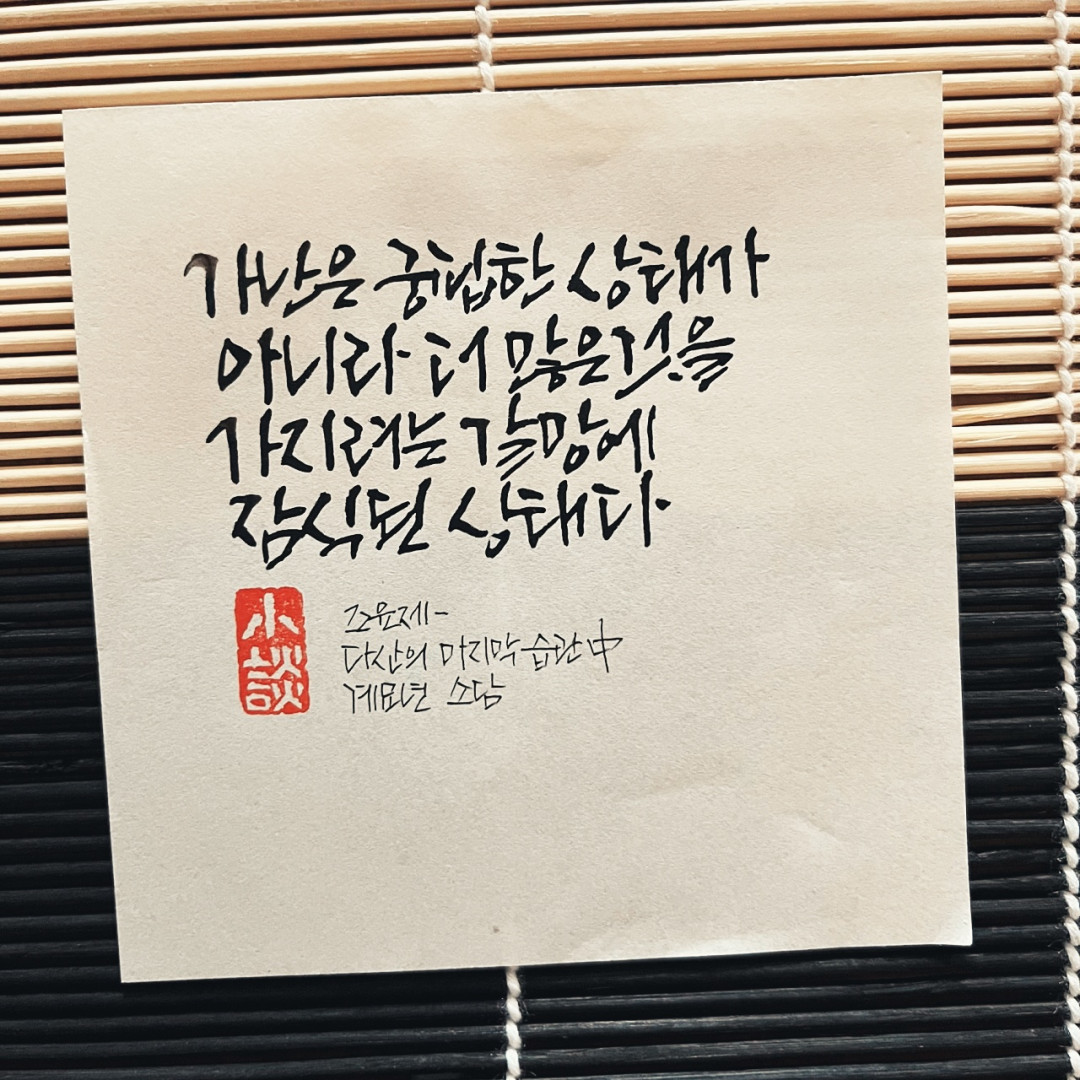 가난은 궁핍한 상태가
아니라 더 많은것을
가지려는 갈망에
잠식된 상태다
小談
조윤제-
다산의 마지막 습관 中
계묘년 소담